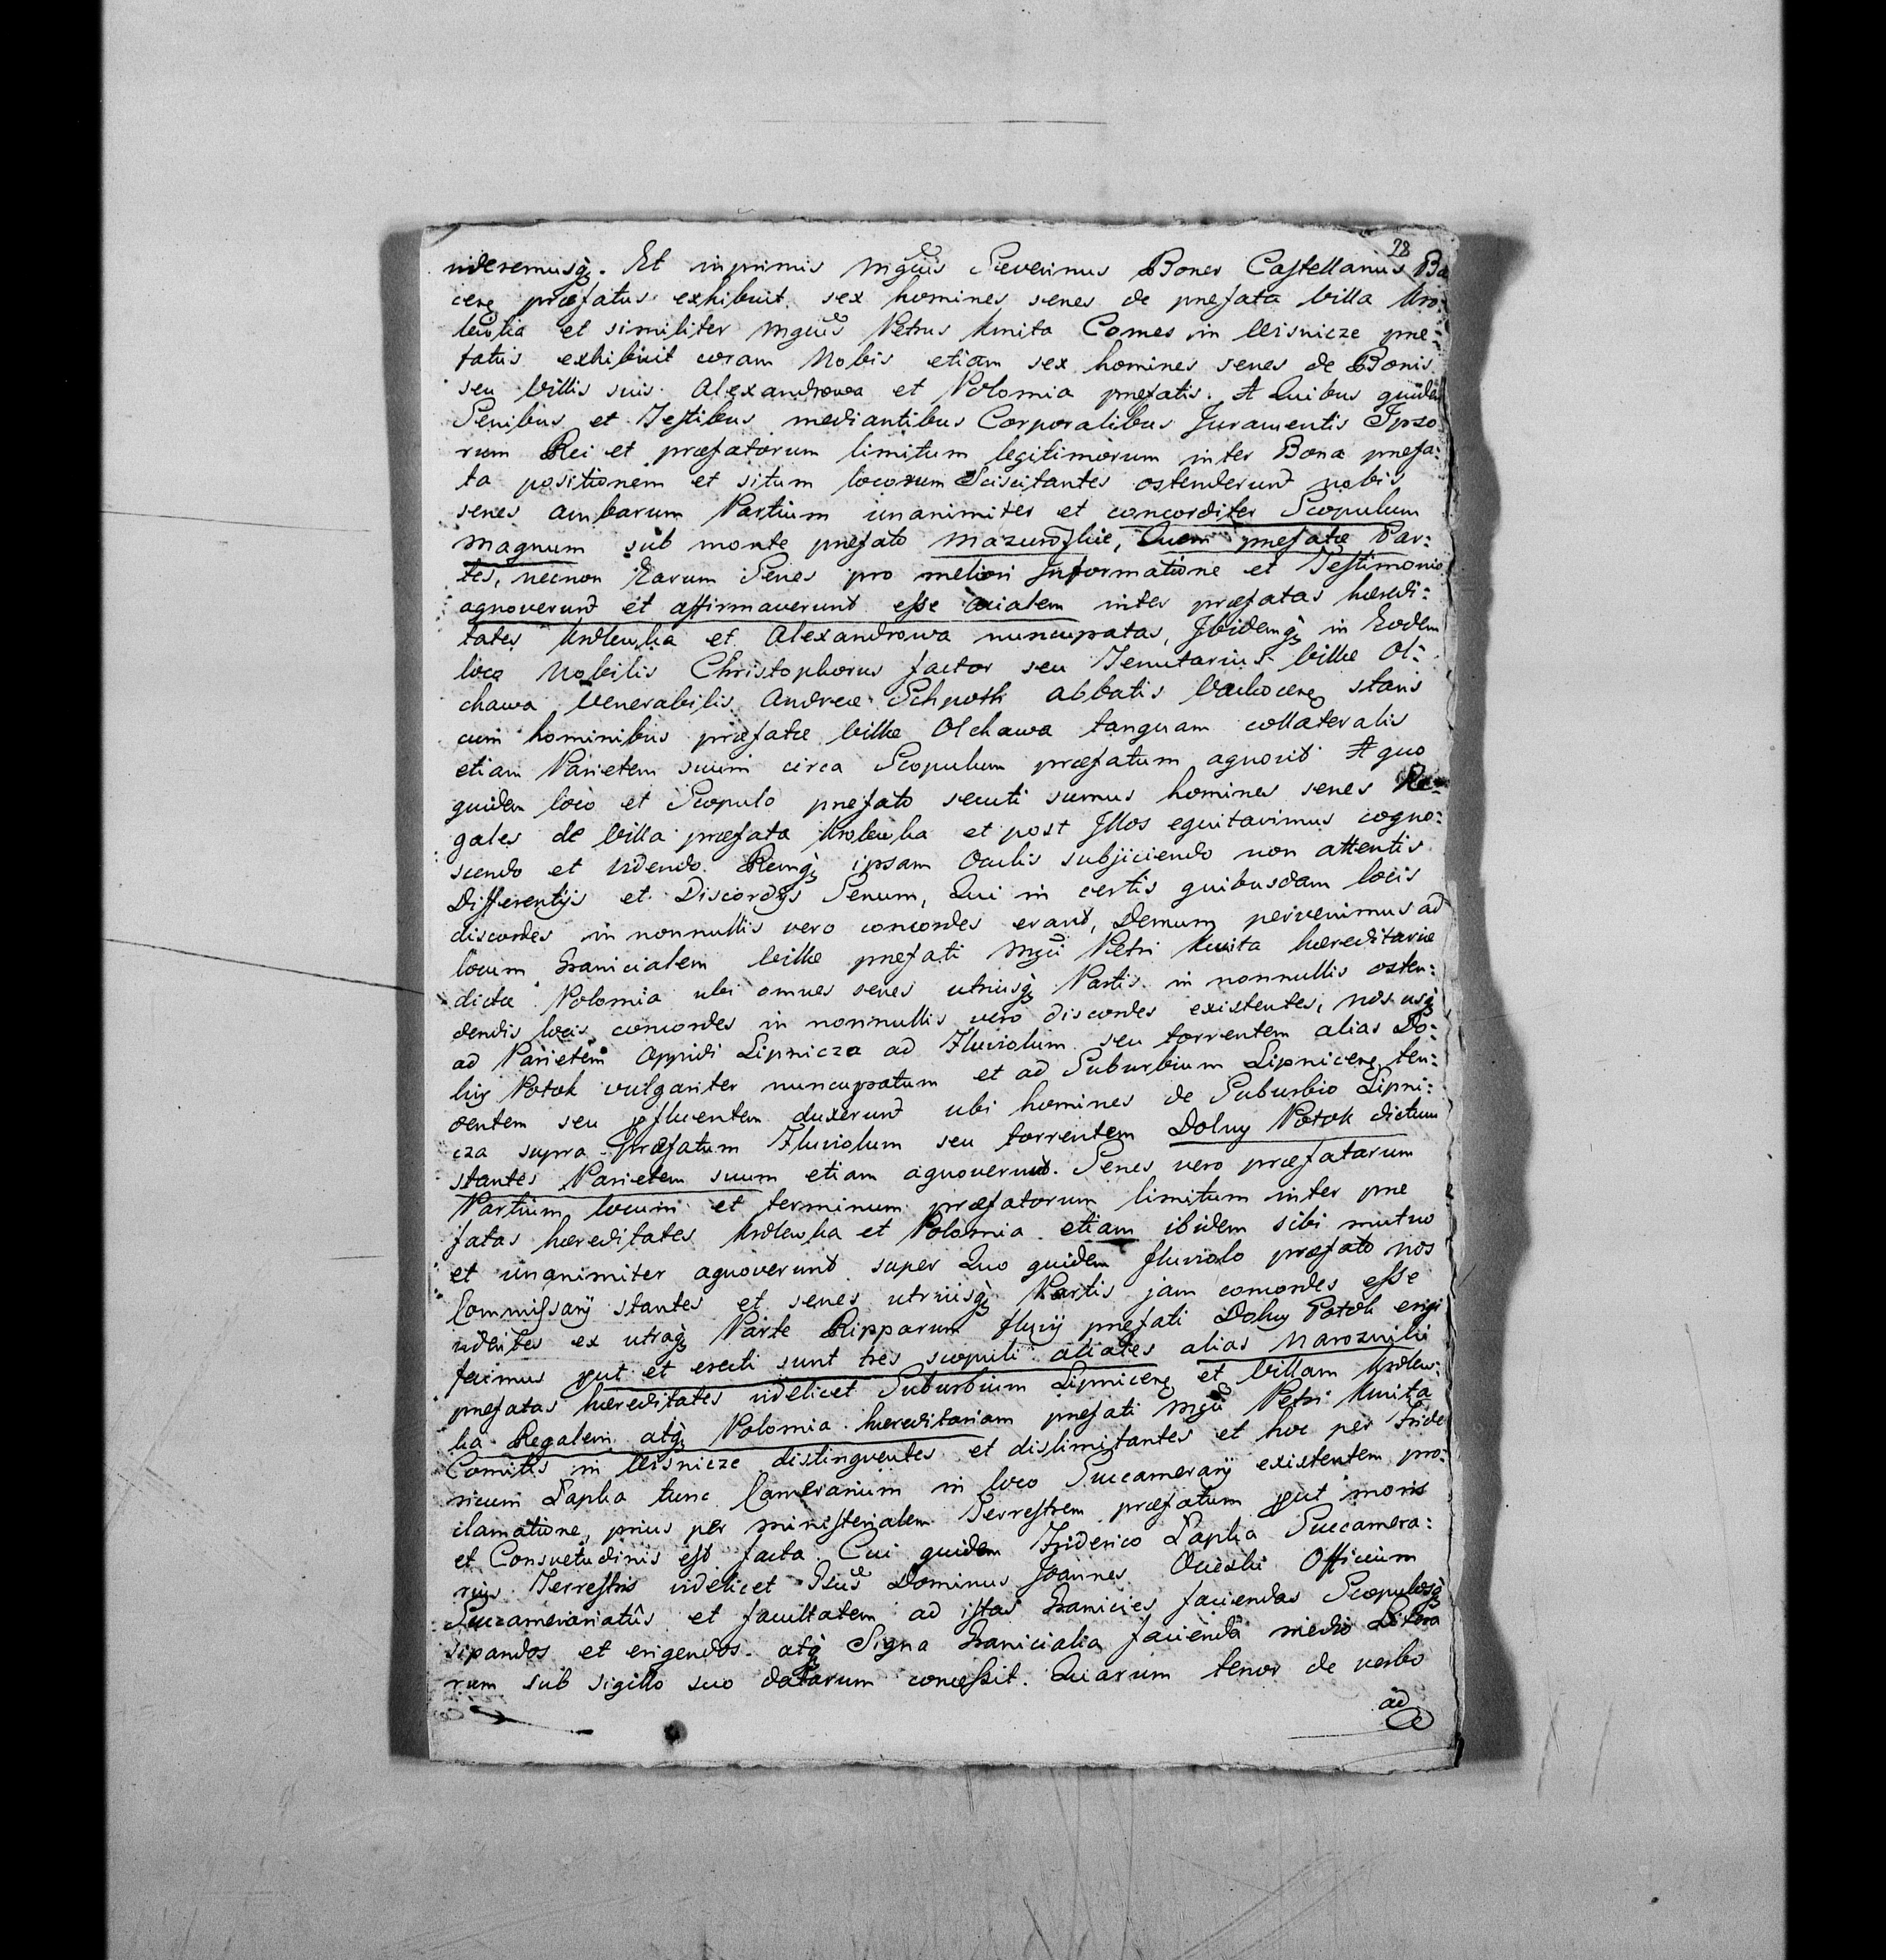 28
nideremusq3. Et inprimis Mgcus Severinus Boner Castellanus Be
cen praefatus exhibuit sex homines senes de prefata villa Kro-
lewka et similiter Mgcus Petrus Kmita Comes in Wisnicze prae-
fatus exhibuit coram Nobis etiam sex homines senes de Bonis
seu Villis suis Alexandrowa et Polomia prefatis. A Quibus quidem
Senibus et Testibus mediantibus Corporalibus Juramentis Ipso
rum Rei et praefatorum limitum legitimorum inter Bona prefa:
ta positionem et situm locorum Sciscitantes ostenderunt nobis
senes ambarum Partium unanimiter et concorditer Scopulum
magnum sub monte prefato Mazurowskie, Quem prefatae Par:
tes, necnon Earum Senes pro meliori Informatione et Testimonio
agnoverunt et affirmaverunt esse acialem inter praefatas haeredi:
tates Krolewka et Alexandrowa nuncupatas, Ibidemq3 in Eodem
loco Nobilis Christophorus factor seu Tenutarius Villae Ol:
chawa Venerabilis Andreae Schpoth Abbatis Vachocen stans
cum hominibus praefatae Villae Olchawa tanquam collateralis
etiam Parietem suum circa Scopulum praefatum agnovit A quo
quidem loco et Scopulo prefato secuti sumus homines senes Re-
gales de Villa praefata Krolewka et post Illos equitavimus cogno:
scendo et videndo. Remq3 ipsam Oculis subjiciendo non attentis
Differentijs et Discordijs Senum, Qui in certis quibusdam locis
discordes in nonnullis vero concordes erant, Demum pervenimus ad
locum Granicialem Villae prefati Mgci Petri Kmita haereditariae
dictae Polomia ubi omnes senes utriusq3 Partis in nonnullis osten:
dendis locis concordes in nonnullis vero discordes existentes, nos usq3
ad Parietem Oppidi Lipnicza ad Fluviolum seu torrentem alias Do:
lny Potok vulgariter nuncupatum et ad Suburbium Lipnicen ten:
dentem seu fluentem duxerunt ubi homines de Suburbio Lipni:
cza supra Praefatum Fluviolum seu torrentem Dolny Potok dictum
stantes Parietem suum etiam agnoverunt. Senes vero praefatarum
Partium locum et terminum praefatorum limitum inter pre
fatas haereditates Krolewka et Polomia etiam ibidem sibi mutuo
et unanimiter agnoverunt super Quo quidem fluviolo praefato nos
Commissarij stantes et senes utriusq3 Partis jam concordes esse
videntes ex utraq3 Parte Ripparum fluvij prefati Dolny Potok erigi
fecimus put et erecti sunt tres scopuli aciales alias Naroznilii
prefatas haereditates videlicet Suburbium Lipnicen et Villam Krolew:
ka Regalem atq3 Polomia haereditariam prefati Mgci Petri Kmita
Comitis in Wisnicze distinguentes et dislimitantes et hoc per Fride
ricum Lapka tunc Camerarium in loco Succamerarij existentem pro:
clamatione, prius per ministerialem Terrestrem praefatum put moris
et Consvetudinis est facta. Cui quidem Friderico Lapka Succamera:
rius Terrestris videlicet Dominus Joannes Ocieski Officium
Succamerariatus et facultatem ad istas Granicies faciendas Scopulosq3
sipandos et erigendos. atq3 Signa Granicialia facienda medio Litera
rum sub sigillo suo datarum concessit. Quarum tenor de verbo
ad